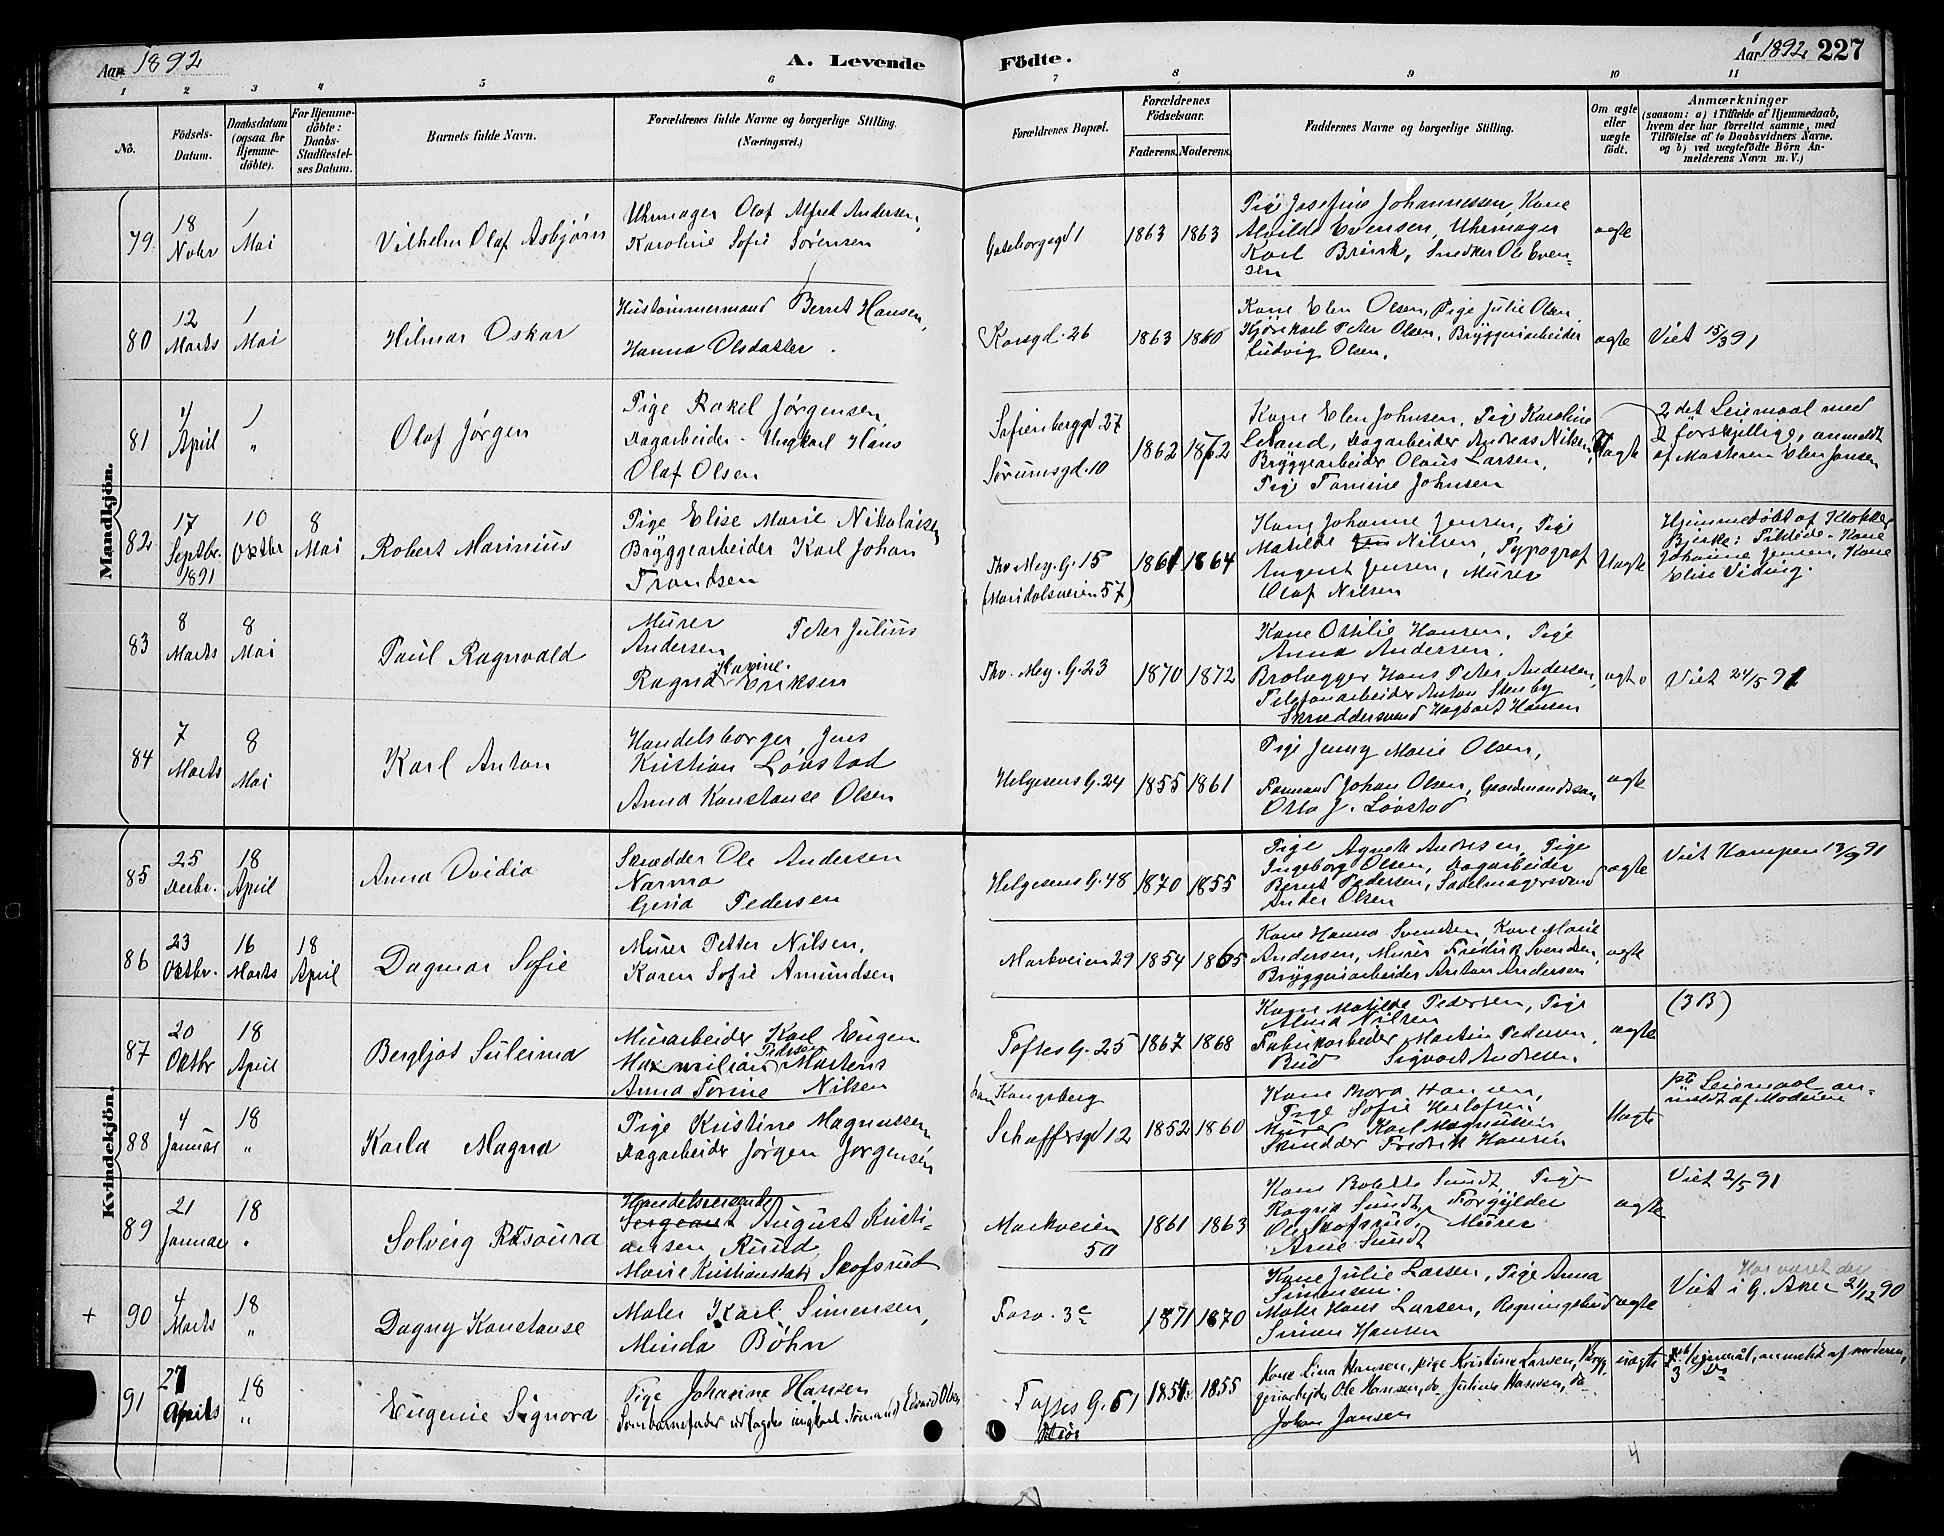 Aar 1892
A. Levende
Födte.
Aar 1892 227
1 2 3 4 5 6 7 8 9 10 11
No.
Födsels-
Datum.
Daabsdatum
(ogsaa for
Hjemme-
döbte).
For Hjemme-
döbte:
Daabs-
Stadfæstel-
ses Datum.
Barnets fulde Navn.
Forældrenes fulde Navne og borgerlige Stilling.
(Næringsvei.)
Forældrenes Bopæl.
Forældrenes
Födselsaar.
Faderens. Moderens.
Faddernes Navne og borgerlige Stilling.
Om ægte
eller
uægte
født.
Anmærkninger
(saasom: a) i Tilfælde af Hjemmedaab,
hvem der har forrettet samme, med
Tilföielse af to Daabsvidners Navne.
og b) ved uægtefödte Börn An-
melderens Navn m. V.)
Mandkjön.
79. 18 Novbr 1 Mai
Vilhelm Olaf Asbjørn
Uhrmager Olaf Alfred Andersen,
Karoline Sofie Sørensen
Gøteborggd 1
1863 1863
Pige Josefine Johannessen, Kone
Alvilde Evensen, Uhrmager
Karl Brink, Snedker Ole Even-
sen
ægte
80 12 Marts 1 Mai
Hilmar Oskar
Hustømmermand Bernt Hansen,
Hanna Olsdatter.
Korsgd. 26
1863 1860
Kone Elen Olsen, Pige Julie Olsen,
Kjørekarl Peter Olsen, Bryggeriarbeider
Ludvig Olsen.
ægte
Viet 15/3 91
81 April 1 "
Olaf Jørgen
Pige Rakel Jørgensen,
Dagarbeider - Ungkarl Hans
Olaf Olsen
Sofienberggd. 27
Sørumsgd. 10
1862 1862
Kone Elen Johnsen, Pige Karoline
Leland, Dagarbeider Andreas Nilsen,
Bryggearbeider Olaus Larsen,
Pige Tomine Johnsen
Uægte
2 det Leiemaal med
2 forskjellige, anmeldt
af Moderen Elen Jansen
82 17 Septbr. 1891 10 Oktbr 8 Mai
Robert Marinius
Pige Elise Marie Nikolaisen
Bryggearbeider Karl Johan
Trondsen
Thv. Mey. G. 15
(Maridalsveien 57)
1861 1864
Kone Johanne Jensen, Pige
Matilde Nilsen, Typograf
August Jensen, Murer
Olaf Nilsen
Uægte
Hjemmedøbt af Klokker
Bjerke: Tilstede - Kone
Johanne Jensen, Kone
Elise Viding.
83 8 Marts 8 Mai
Paul Ragnvald
Murer Peter Julius
Andersen
Ragna Karine Eriksen
Thv. Mey. G. 23
1870 1872
Kone Ottilie Hansen, Pige
Anna Andersen,
Brolægger Hans Peter Andersen,
Telefonarbeider Anton Stenby
Skræddersvend Hagbart Hansen
ægte
Viet 24/5 91
84 7 Marts 8 Mai
Karl Anton
Handelsborger Jens
Kristian Løvstad
Anna Konstanse Olsen
Helgesens G. 24
1855 1861
Pige Jenny Marie Olsen,
Formand Johan Olsen, Gaardmandssøn
Otto J. Løvstad
ægte
Kvindekjön.
85 25 Decbr. 18 April
Anna Ovidia
Skrædder Ole Andersen
Narmo
Gina Pedersen
Helgesens G. 48
1870 1855
Pige Agnete Andresen, Pige
Ingeborg Olsen, Dagarbeider
Bernt Pedersen, Sadelmagersvend
Ander Olsen
ægte
Viet Kampen 13/9 91
86 23 Oktbr. 16 Marts 18 April
Dagmar Sofie
Murer Petter Nilsen,
Karen Sofie Amundsen
Markveien 29
1854 1865
Kone Hanna Svendsen, Kone Marie
Andersen, Murer Fredrik Svendsen,
Bryggeriarbeider Anton Andersen
ægte
87 20 Oktbr 18 April
Bergljot Suleima
Murarbeider Karl Eugen
Maxmilian Pedersen Martens
Anna Torine Nilsen
Toftes G. 25
1867 1868
Kone Matilde Pedersen, Pige
Alma Nilsen
Fabrikarbeider Martin Pedersen,
Bud Sigvart Andresen.
ægte
(3 B)
88 4 Januar 18 "
Karla Magna
Pige Kristine Magnussen
Dagarbeider Jørgen Jørgensen
Kongsberg
Schaffersgd 12
1852 1860
Kone Hansen,
Pige Sofie Herlofsen
Murer Karl Magnussen
Skrædder Fredrik Hansen
Uægte
1ste Leiemaal an-
meldt af Moderen
89 21 Januar 18 "
Solveig Rosaura
Handelsreisende
Sergeant August Kristi-
ansen Ruud,
Marie Kristiansdatter Skofsrud
Markveien
50
1861 1863
Kone Bolette Sundt, Pige
Ragna Sundt, Forgylder
Ole Skofsrud, Murer
Arne Sundt
ægte
Viet 2/5 91
+ 90 4 Marts 18 "
Dagny Konstanse
Maler Karl Simensen,
Minda Bøhn
Fosv. 3c
1871 1870
Kone Julie Larsen, Pige Anna
Simensen.
Maler Hans Larsen, Regningsbud
Simen Hansen
ægte
Har været død
Viet i G. Aker 21/12 90
91 27 April 18 "
Eugenie Signora
Pige Johasine Hansen
Som barnefader udlagdes ungkarl Sømand Edvard Olsen
Toftes G. 51
1854 1855
Kone Lina Hansen, pige Kristine Larsen, Bryg-
geriarbeider Ole Hansen, do Julius Hansen, do
Johan Jansen
uægte
lejemål, anmeldt af moderen,
4